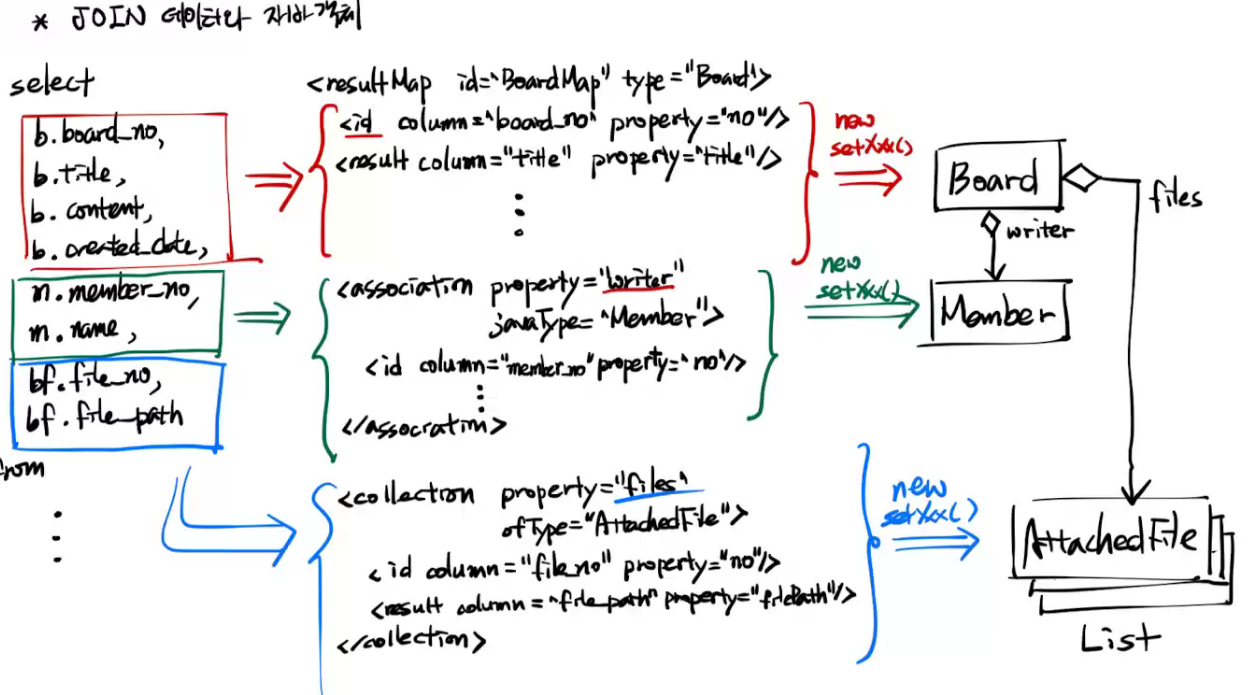 * JOIN 데이터와 자바객체
select
b.board_no,
b.title,
b.content,
b.created_date,
m.member_no,
m.name,
bf.file_no,
bf.file_path
from
<resultMap id="BoardMap" type="Board">
<id column="board_no" property="no"/>
<result column="title" property="title"/>
<association property="writer"
javaType="Member">
<id column="member_no" property="no"/>
</association>
<collection property="files"
ofType="AttachedFile">
<id column="file_no" property="no"/>
<result column="file_path" property="filePath"/>
</collection>
new
setXxx()
new
setXxx()
new
setXxx()
Board
files
writer
Member
AttachedFile
List